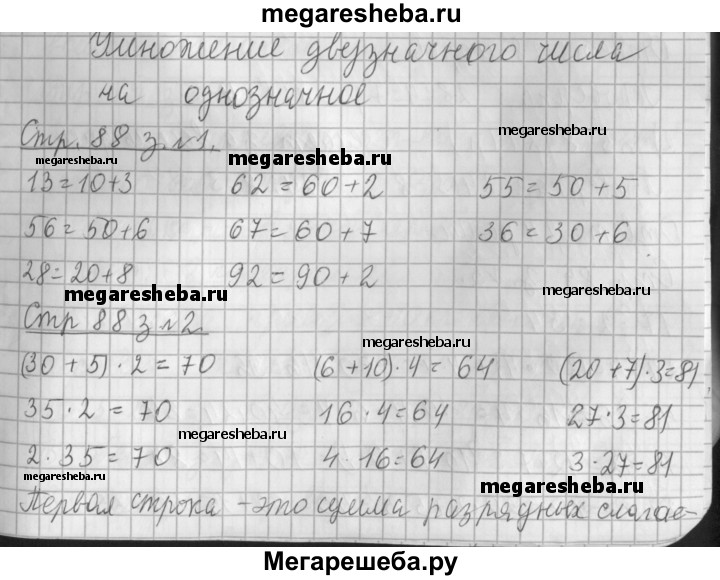 megaresheba.ru
Умножение двузначного числа
на однозначное
Стр. 88 з. №1.
megaresheba.ru
megaresheba.ru
megaresheba.ru
13=10+3 62=60+2 55=50+5
56=50+6 67=60+7 36=30+6
28=20+8 92=90+2
megaresheba.ru
megaresheba.ru
Стр 88 з №2.
megaresheba.ru
(30+5)·2=70 (6+10)·4=64 (20+7)·3=81
35·2=70 16·4=64 27·3=81
megaresheba.ru
2·35=70 4·16=64 3·27=81
megaresheba.ru
megaresheba.ru
Первая строка - это сумма разрядных слагае-
Мегарешеба.ру